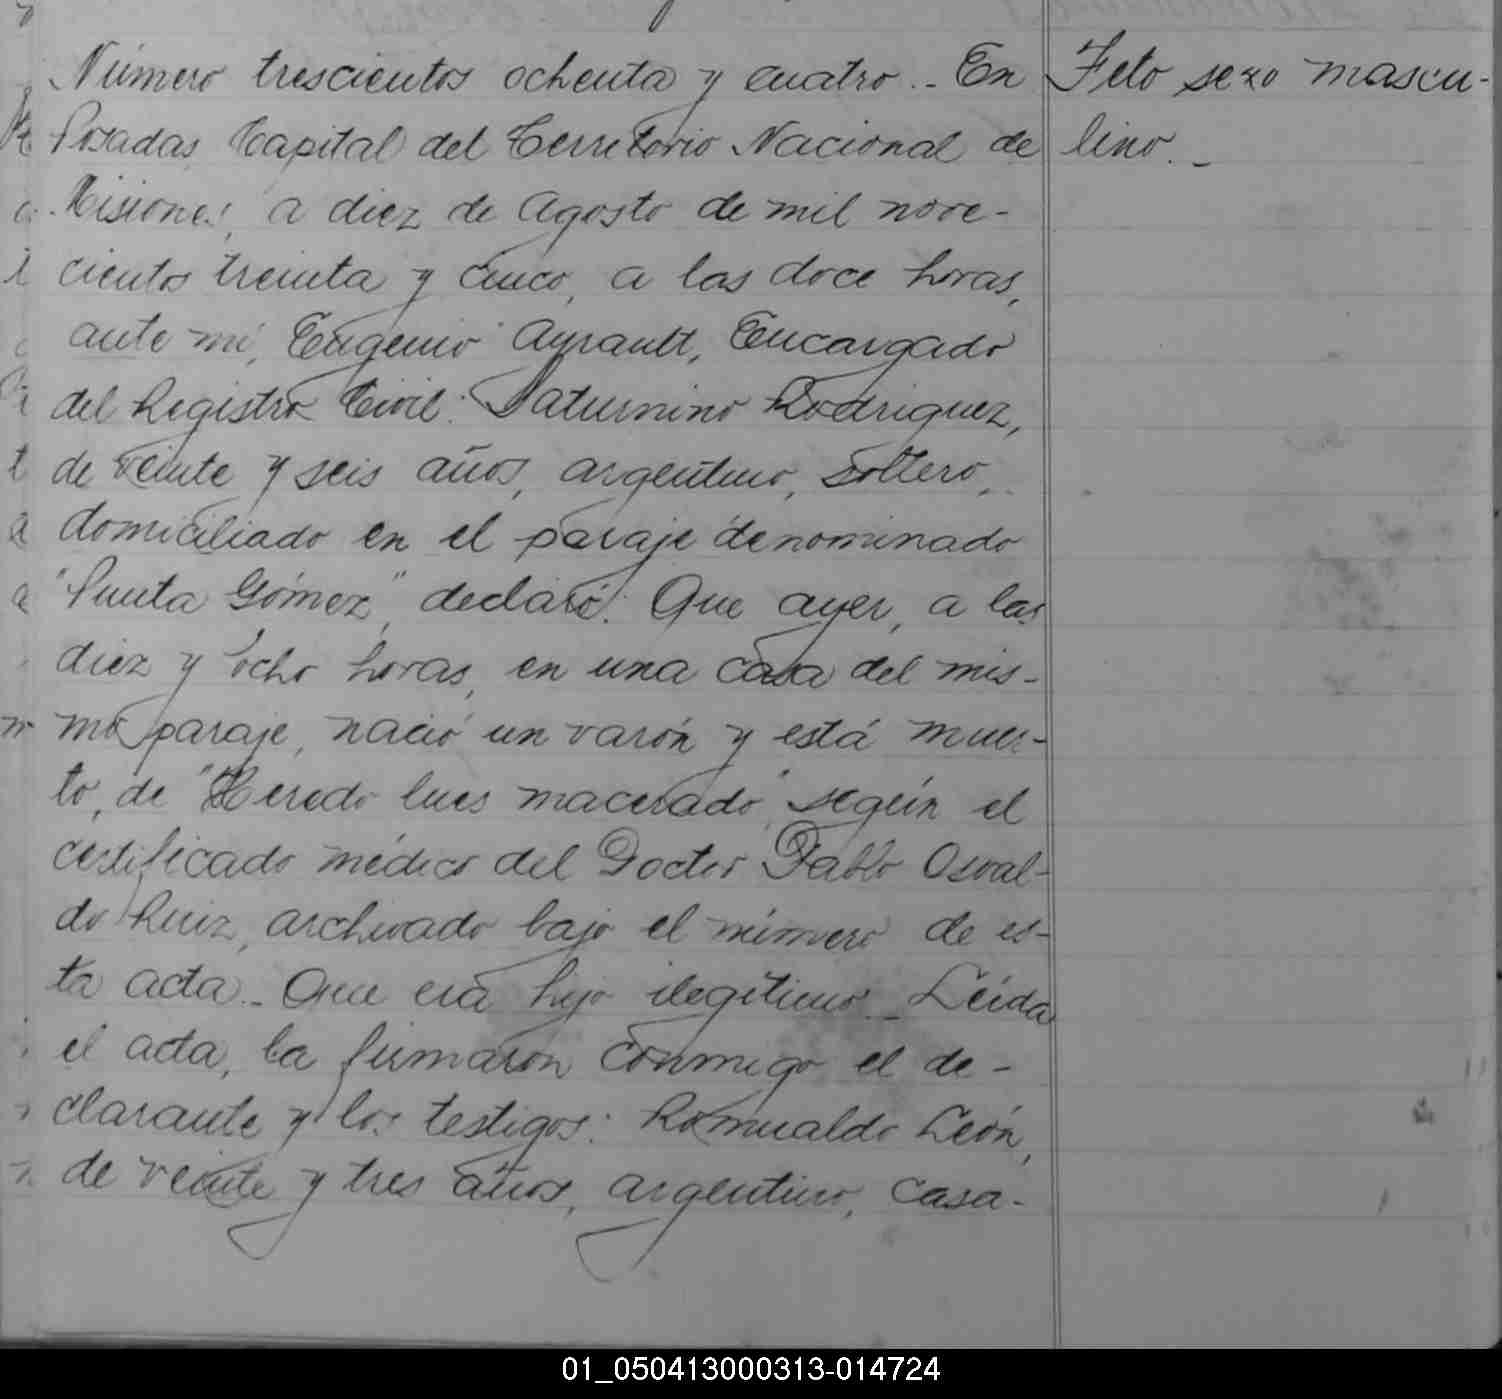 Número trescientos ochenta y cuatro.- En
Posadas, Capital del Territorio Nacional de
Misiones, a diez de Agosto de mil nove-
cientos treinta y cinco, a las doce horas,
ante mí, Eugenio Ayrault, Encargado
del Registro Civil: Saturnino Rodriguez,
de veinte y seis años, argentino, soltero,
domiciliado en el paraje denominado
"Punta Gómez", declaró: Que ayer, a las
diez y ocho horas, en una casa del mis-
mo paraje, nació un varón y está muer-
to, de "Heredo lues macerado", según el
certificado médico del Doctor Pablo Osval-
do Ruiz, archivado bajo el número de es-
ta acta.- Que era hijo ilegítimo.- Leída
el acta, la firmaron conmigo el de-
clarante y los testigos: Romualdo León,
de veinte y tres años, argentino, casa-
Feto sexo mascu-
lino.-
01_050413000313-014724